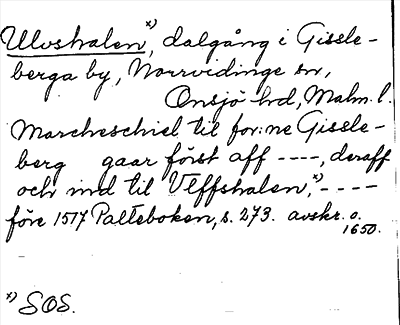 Ulvshalen x), dalgång i Gissle-
berga by, Norrvidinge sn,
Onsjö hd, Malm. l.
Marcheschiel til for:ne Gissle-
berg gaar först aff ----, deraff
och ind til Vlffshalen x), ----
före 1517 Palteboken, s. 273. avskr. o.
1650.
x) SOS.